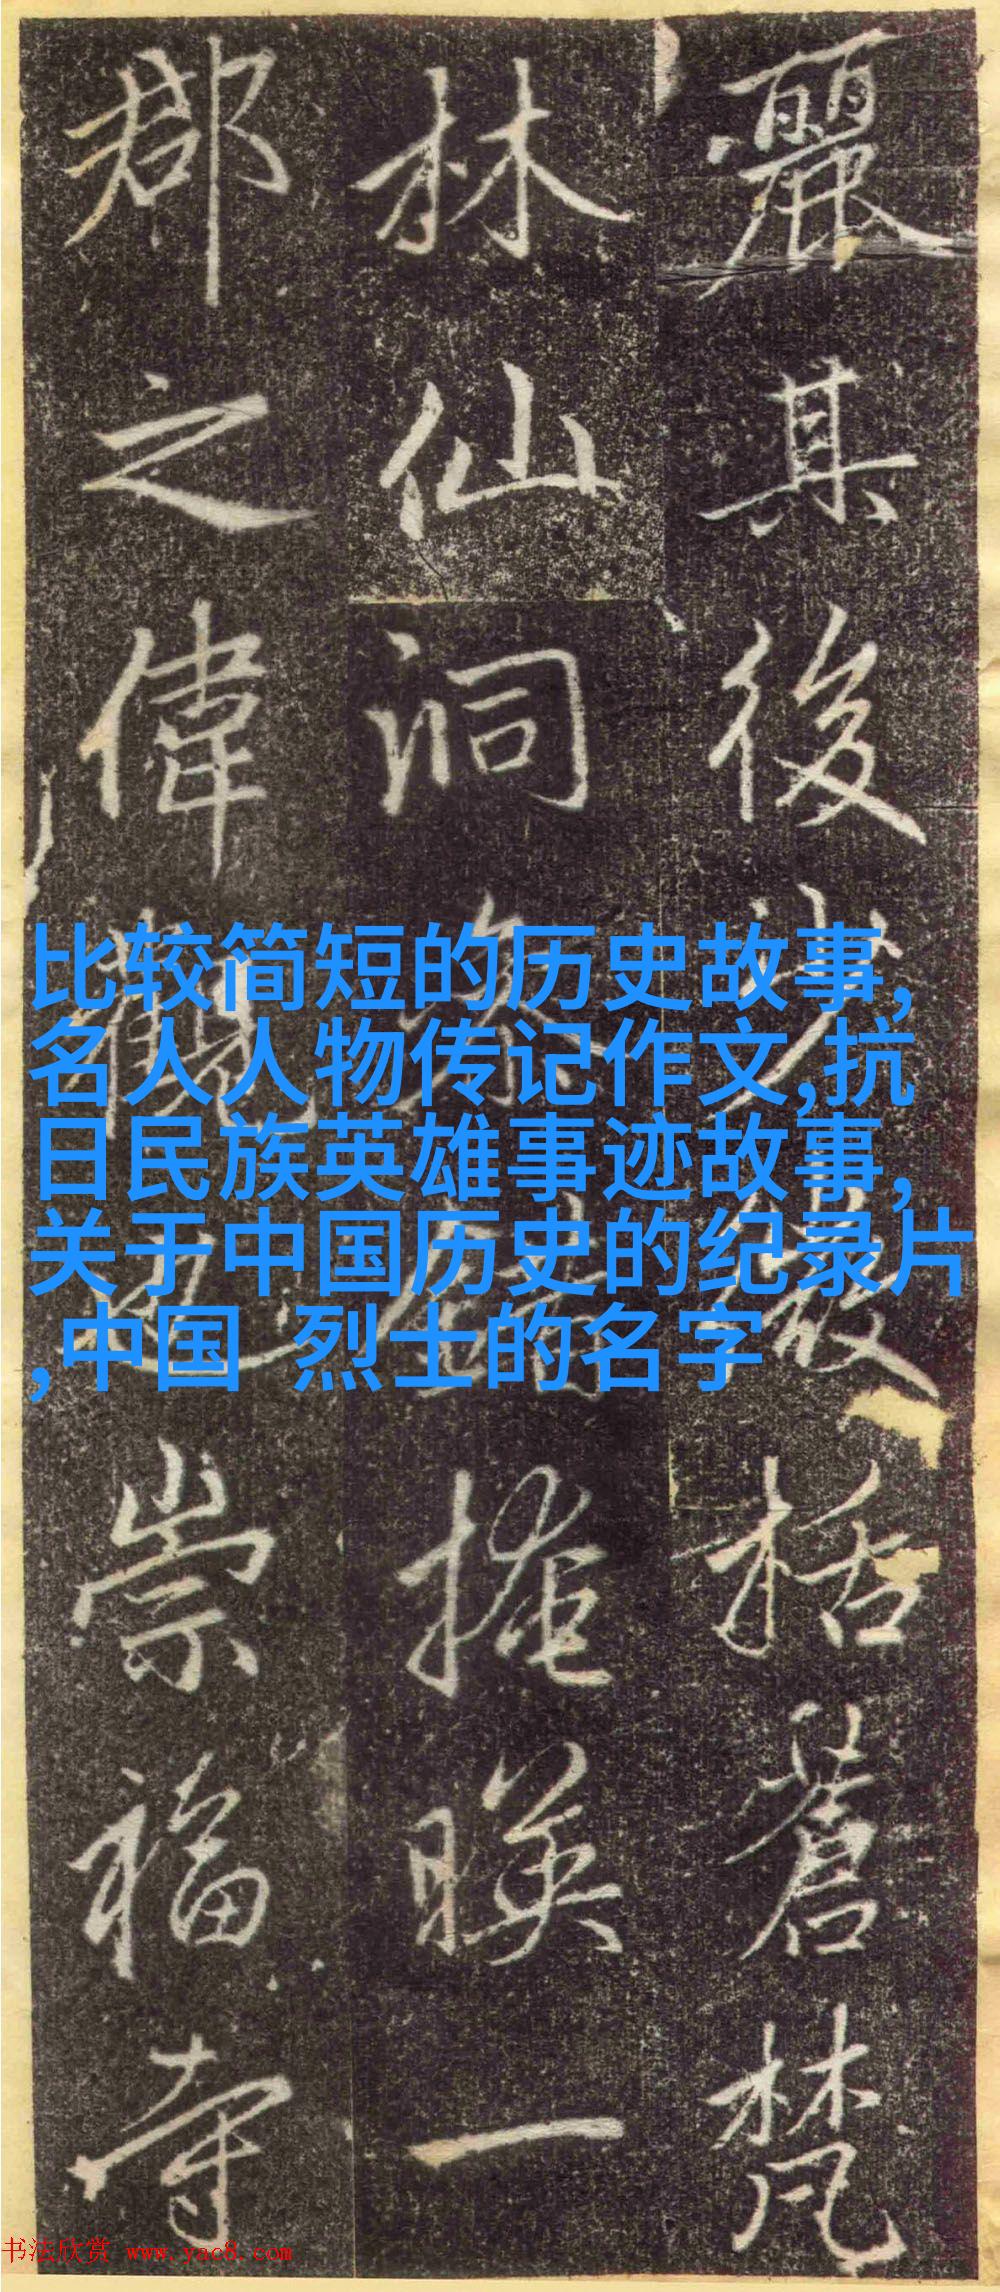 麗其後少括蒼梵
林仙洞掩暎一
郡之偉觀也崇福寺
比较简短的历史故事,
名人人物传记作文,抗
日民族英雄事迹故事,
关于中国历史的纪录片
,中国 烈士的名字
书法欣赏 www.yac8.com